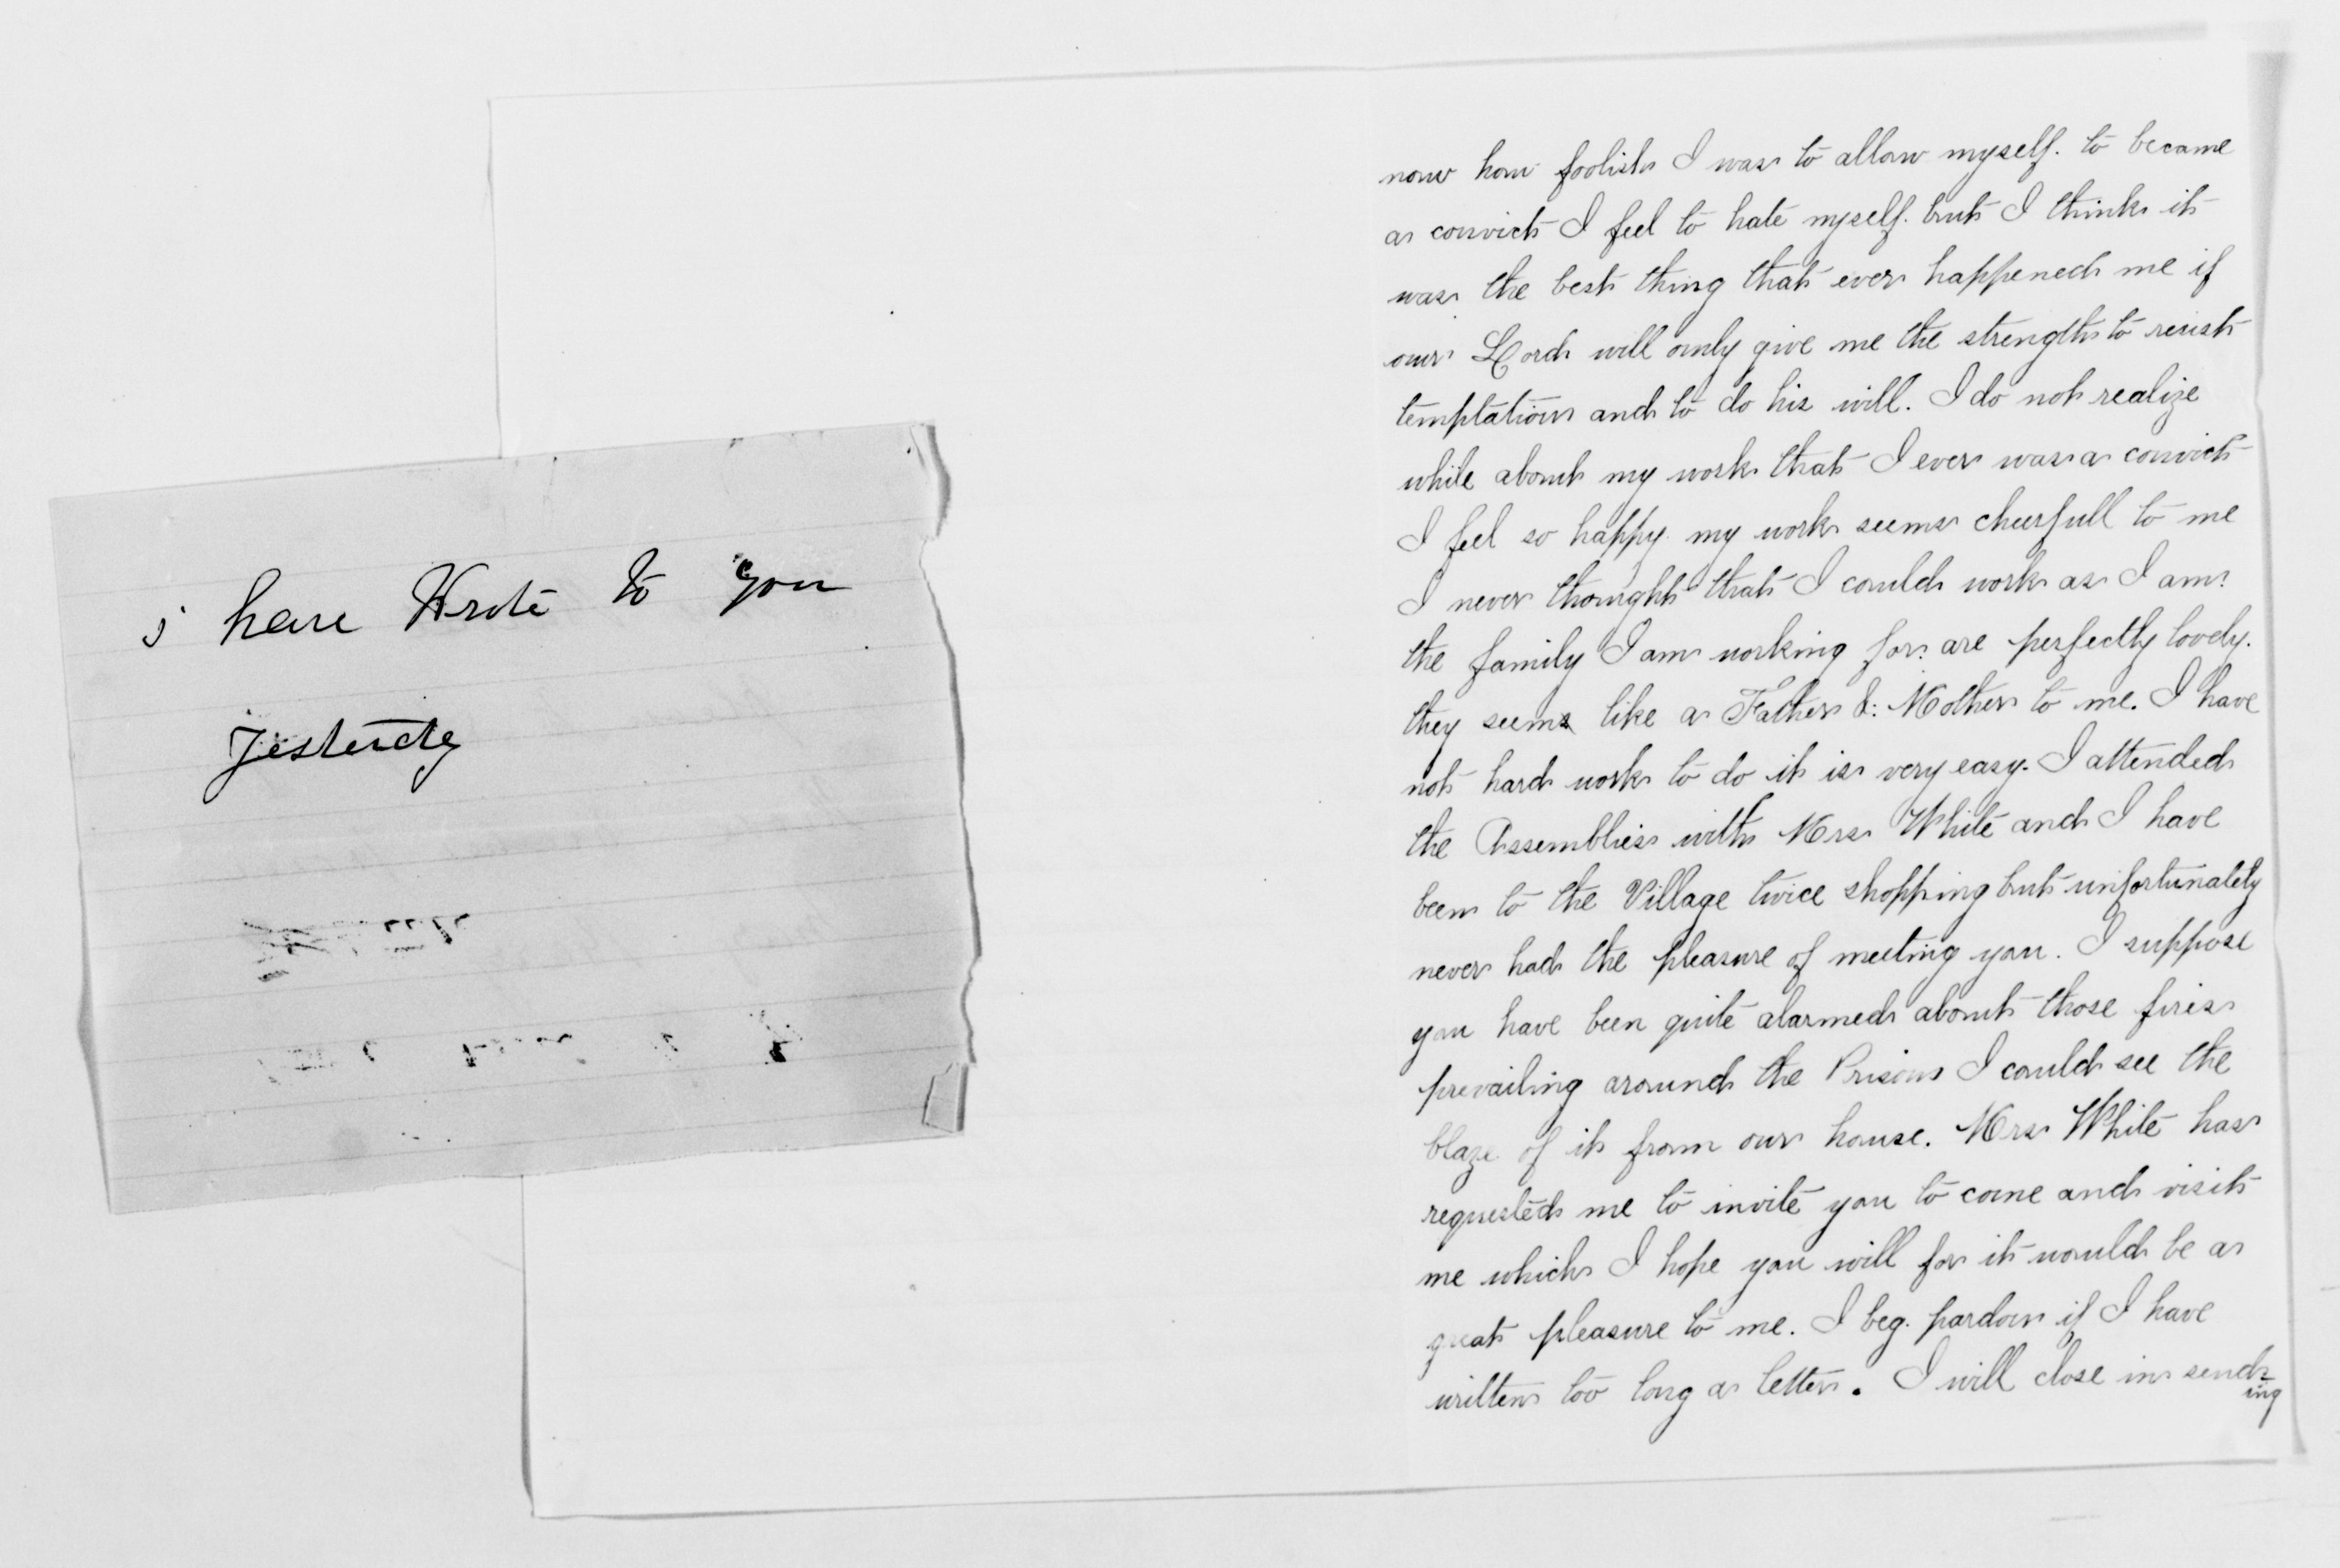 i have Wrote to you
Yesterdy
now how foolish I was to allow myself. to became
a convict I feel to hate myself. but I think it
was the best thing that ever happened me if
our Lord will only give me the strength to resist
temptation and to do his will. I do not realize
while about my work that I ever was a convict
I feel so happy my work seems cheerfull to me
I never thought that I could work as I am.
the family I am working for. are perfectly lovely.
they seems like a Father & Mother to me. I have
not hard work to do it is very easy. I attended
the Assemblies with Mrs White and I have
been to the Village twice shopping but unfortunately
never had the pleasure of meeting you. I suppose
you have been quite alarmed about those fires
prevailing around the Prison I could see the
blaze of it from our house. Mrs White has
requested me to invite you to come and visit
me which I hope you will for it would be a
great pleasure to me. I beg. pardon if I have
written too long a letter. I will close in send-
ing